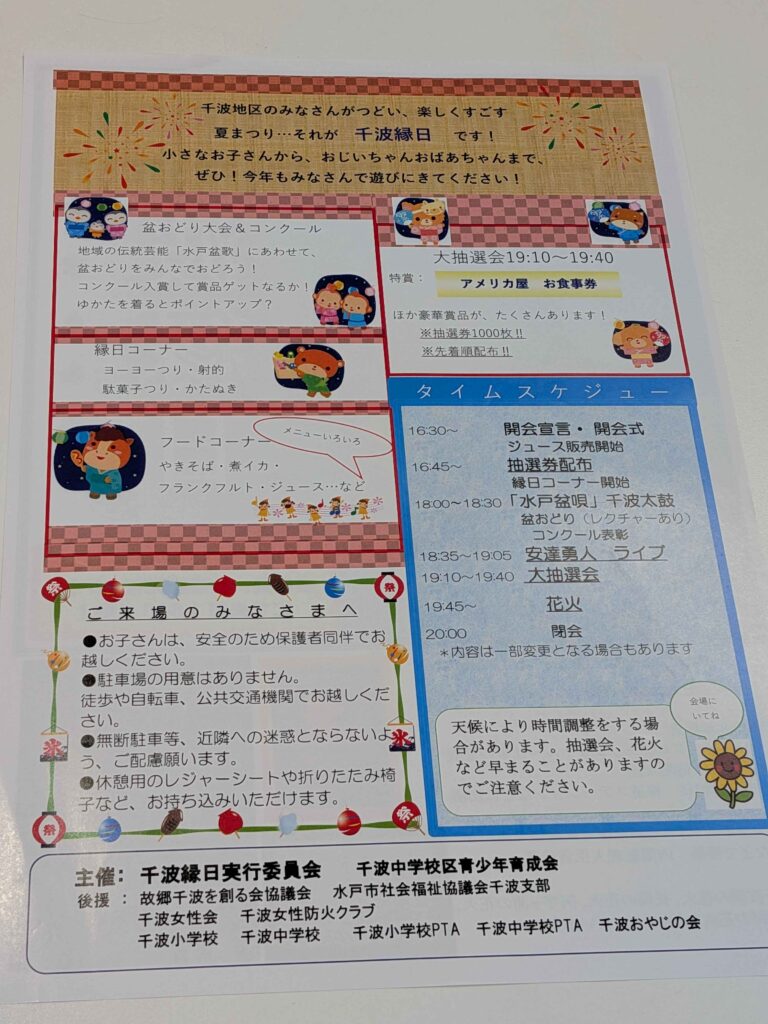 千波地区のみなさんがつどい、楽しくすごす
夏まつり…それが 千波縁日 です！
小さなお子さんから、おじいちゃんおばあちゃんまで、
ぜひ！今年もみなさんで遊びにきてください！
盆おどり大会＆コンクール
地域の伝統芸能「水戸盆歌」にあわせて、
盆おどりをみんなでおどろう！
コンクール入賞して賞品ゲットなるか！
ゆかたを着るとポイントアップ？
縁日コーナー
ヨーヨーつり・射的
駄菓子つり・かたぬき
フードコーナー
メニューいろいろ
やきそば・煮イカ・
フランクフルト・ジュース…など
大抽選会19:10～19:40
特賞：
アメリカ屋 お食事券
ほか豪華賞品が、たくさんあります！
※抽選券1000枚‼
※先着順配布‼
タイムスケジュー
16:30～ 開会宣言・開会式
ジュース販売開始
16:45～ 抽選券配布
縁日コーナー開始
18:00～18:30「水戸盆唄」千波太鼓
盆おどり（レクチャーあり）
コンクール表彰
18:35～19:05 安達勇人 ライブ
19:10～19:40 大抽選会
19:45～ 花火
20:00 閉会
＊内容は一部変更となる場合もあります
会場に
いてね
天候により時間調整をする場
合があります。抽選会、花火
など早まることがありますの
でご注意ください。
祭
祭
ご来場のみなさまへ
●お子さんは、安全のため保護者同伴でお
越しください。
●駐車場の用意はありません。
徒歩や自転車、公共交通機関でお越しくだ
さい。
●無断駐車等、近隣への迷惑とならないよ
う、ご配慮願います。
●休憩用のレジャーシートや折りたたみ椅
子など、お持ち込みいただけます。
氷
氷
祭
祭
主催： 千波縁日実行委員会 千波中学校区青少年育成会
後援： 故郷千波を創る会協議会 水戸市社会福祉協議会千波支部
千波女性会 千波女性防火クラブ
千波小学校 千波中学校 千波小学校PTA 千波中学校PTA 千波おやじの会